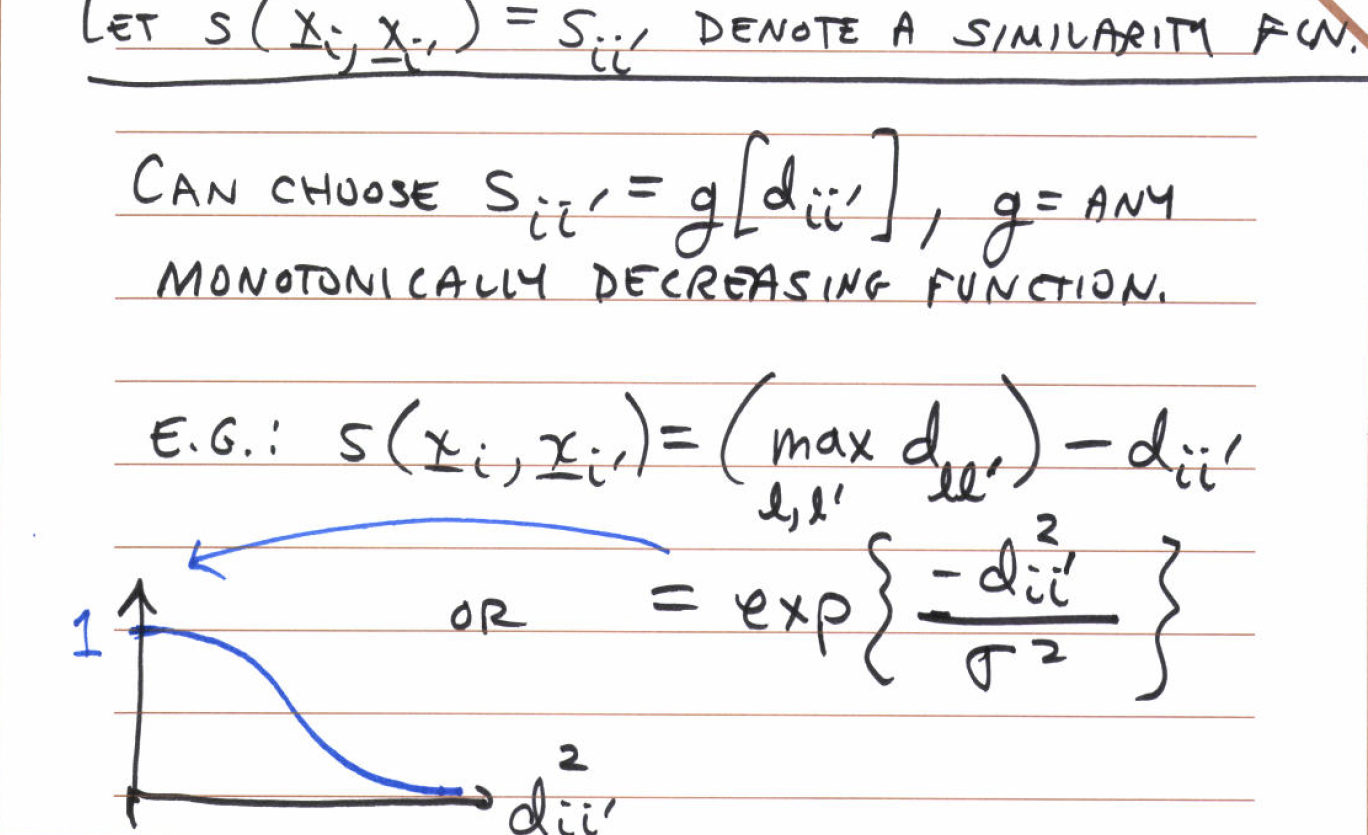 LET S(x̲ᵢ, x̲ᵢ′) = Sᵢᵢ′ DENOTE A SIMILARITY FCN.
CAN CHOOSE Sᵢᵢ′ = g[dᵢᵢ′], g = ANY
MONOTONICALLY DECREASING FUNCTION.
E.G.: S(x̲ᵢ, x̲ᵢ′) = (max_{l,l′} d_{ll′}) − dᵢᵢ′
OR = exp{−d²ᵢᵢ′ / σ²}
1
d²ᵢᵢ′